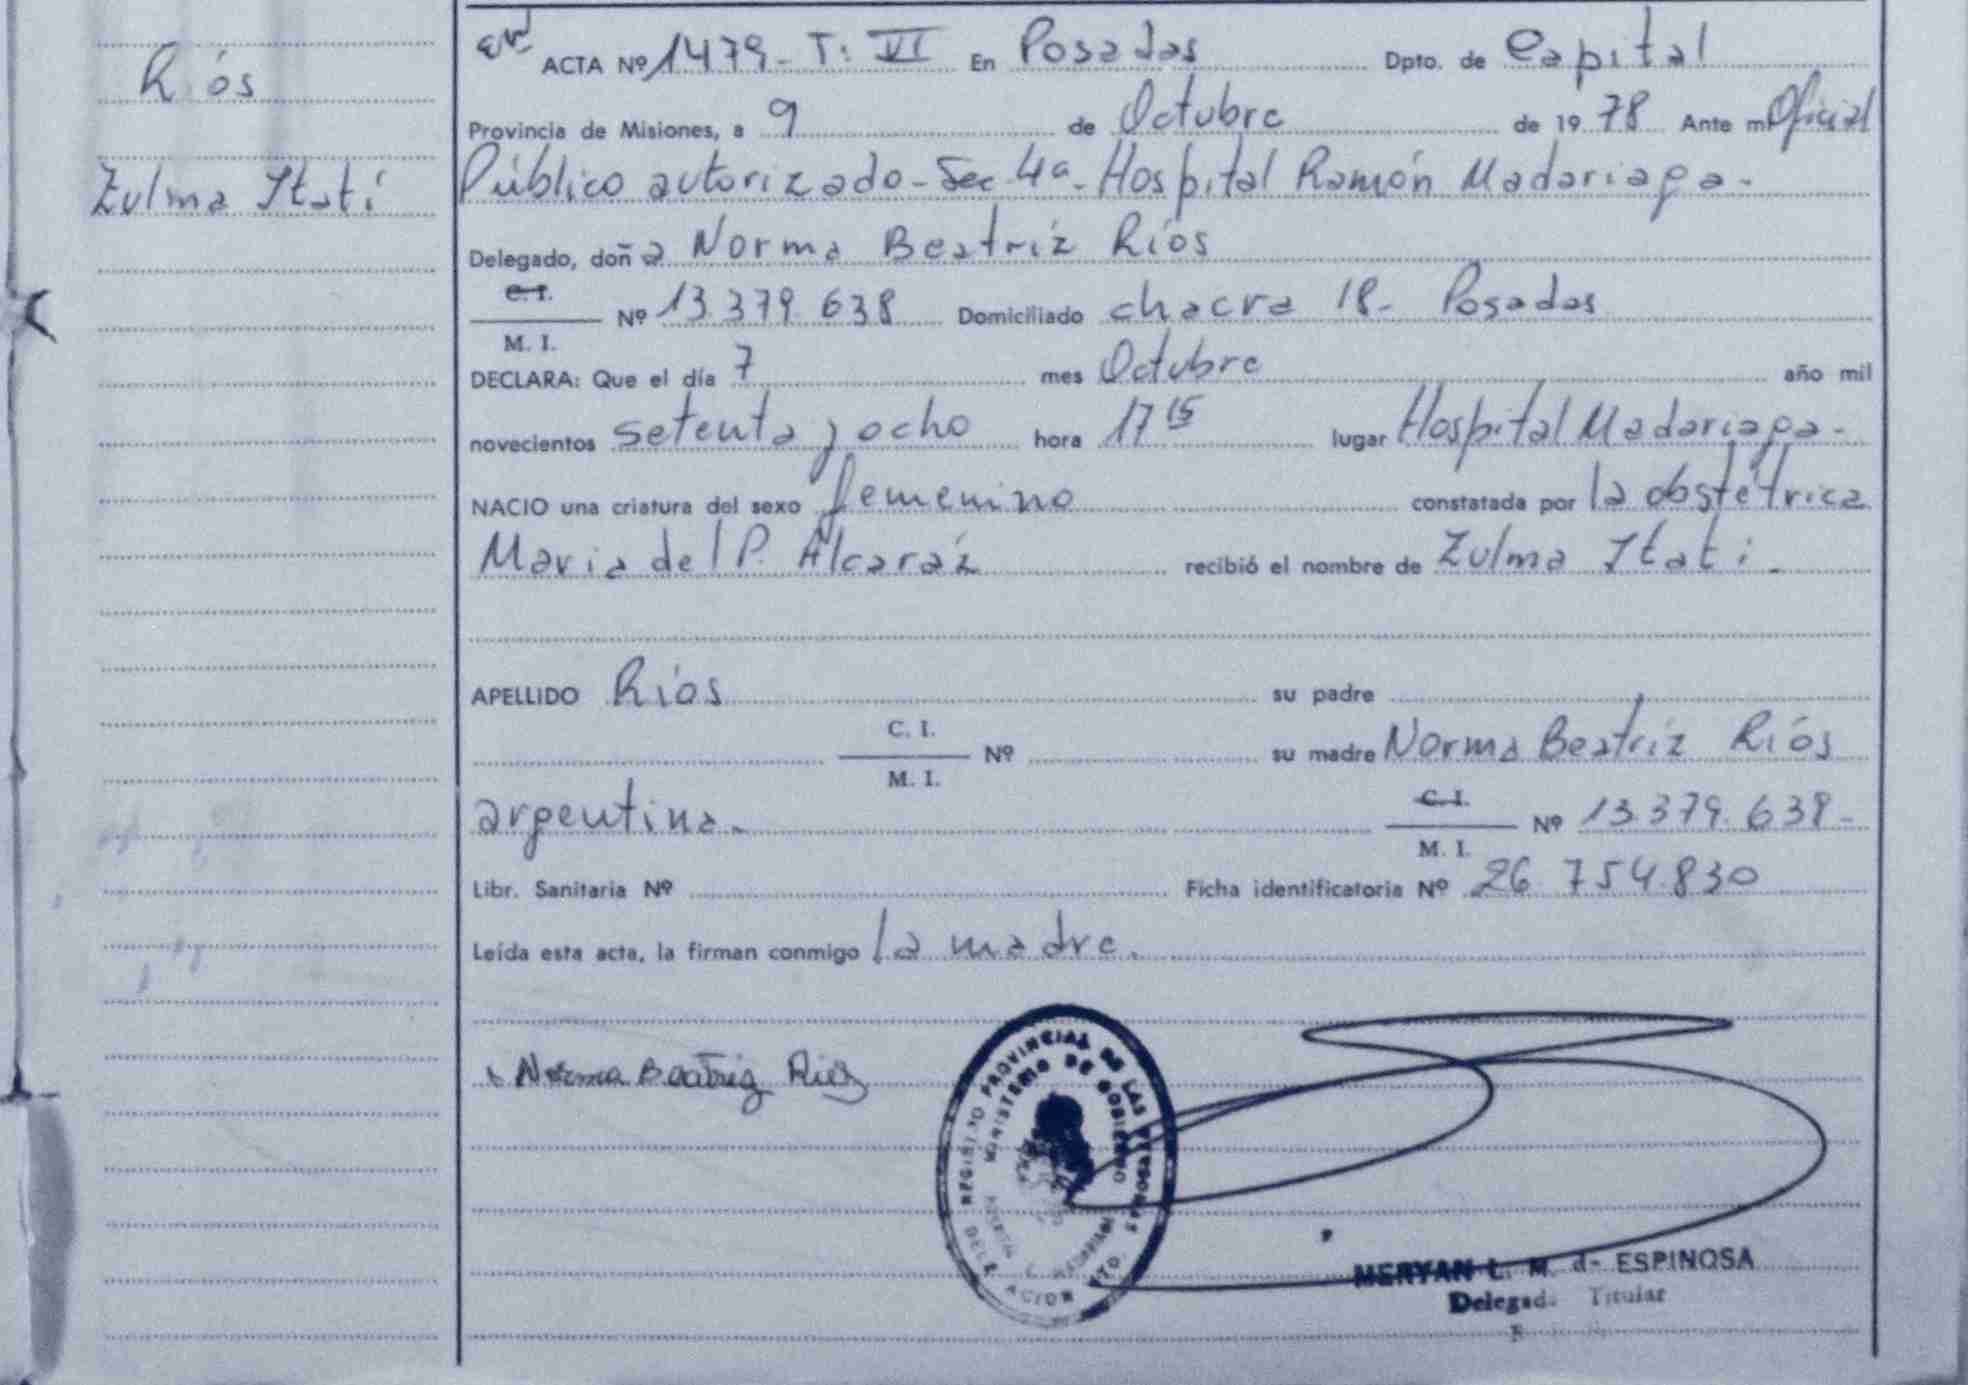 Ríos
Zulma Itatí
ACTA Nº 1479 - T: VI En Posadas Dpto. de Capital
Provincia de Misiones, a 9 de Octubre de 1978 Ante mí Oficial
Público autorizado - Sec 4a - Hospital Ramón Madariaga -
Delegado, doña Norma Beatriz Ríos
C. I.
Nº 13.379.638 Domiciliado chacra 18 - Posadas
M. I.
DECLARA: Que el día 7 mes Octubre año mil
novecientos setenta y ocho hora 17 15 lugar Hospital Madariaga -
NACIO una criatura del sexo femenino constatada por la obstétrica
Maria del P. Alcaráz recibió el nombre de Zulma Itatí -
APELLIDO Ríos su padre
C. I.
Nº su madre Norma Beatriz Ríos
M. I.
argentina - C. I. Nº 13.379.638 -
M. I.
Libr. Sanitaria Nº Ficha identificatoria Nº 26 754.830
Leída esta acta, la firman conmigo la madre.
Norma Beatriz Rios
REGISTRO PROVINCIAL DE LAS PERSONAS
MINISTERIO DE GOBIERNO
MERYAN L. M. de ESPINOSA
Delegada Titular